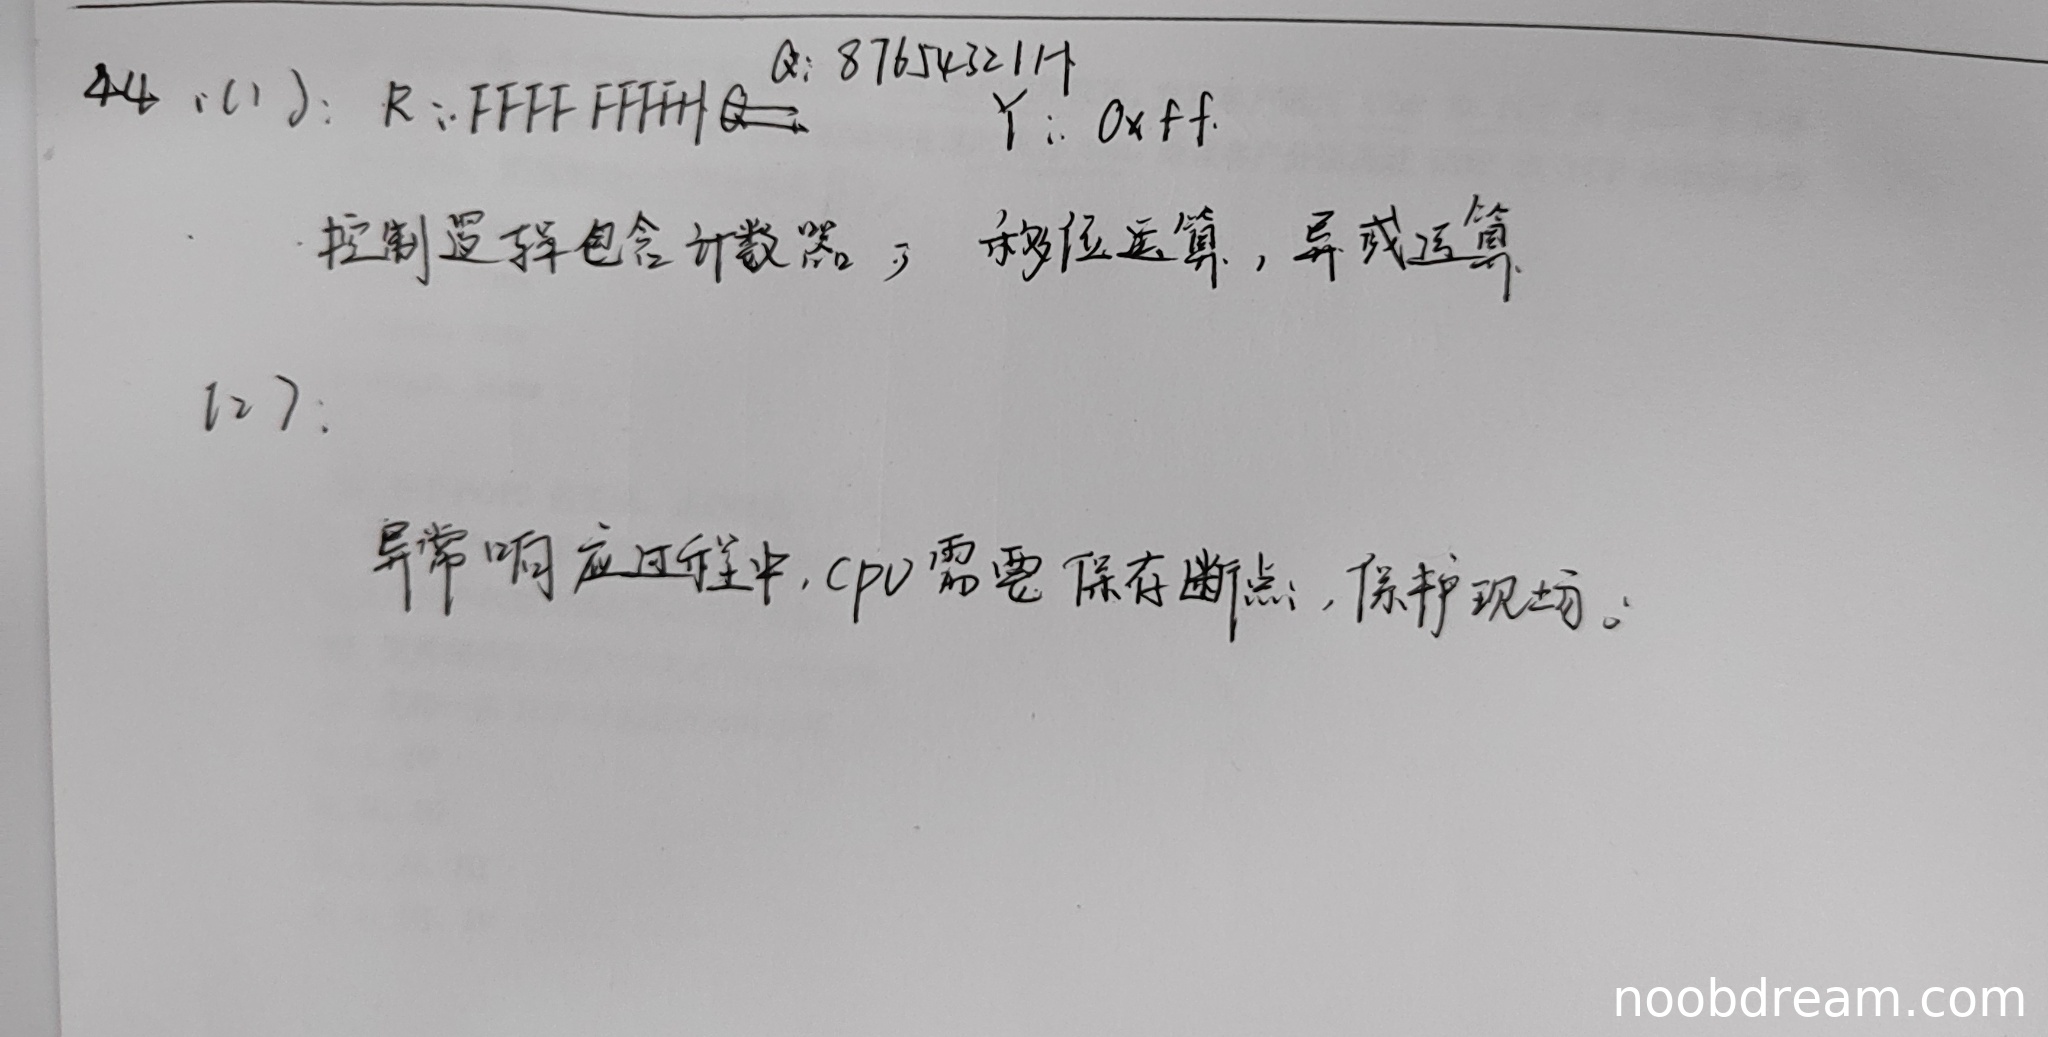 Q: 87654321H
44.(1): R: FFFF FFFFH Y: 0xff.
控制逻辑包含计数器, 移位运算, 异或运算
(2):
异常响应过程中, CPU需要保存断点, 保护现场。
noobdream.com